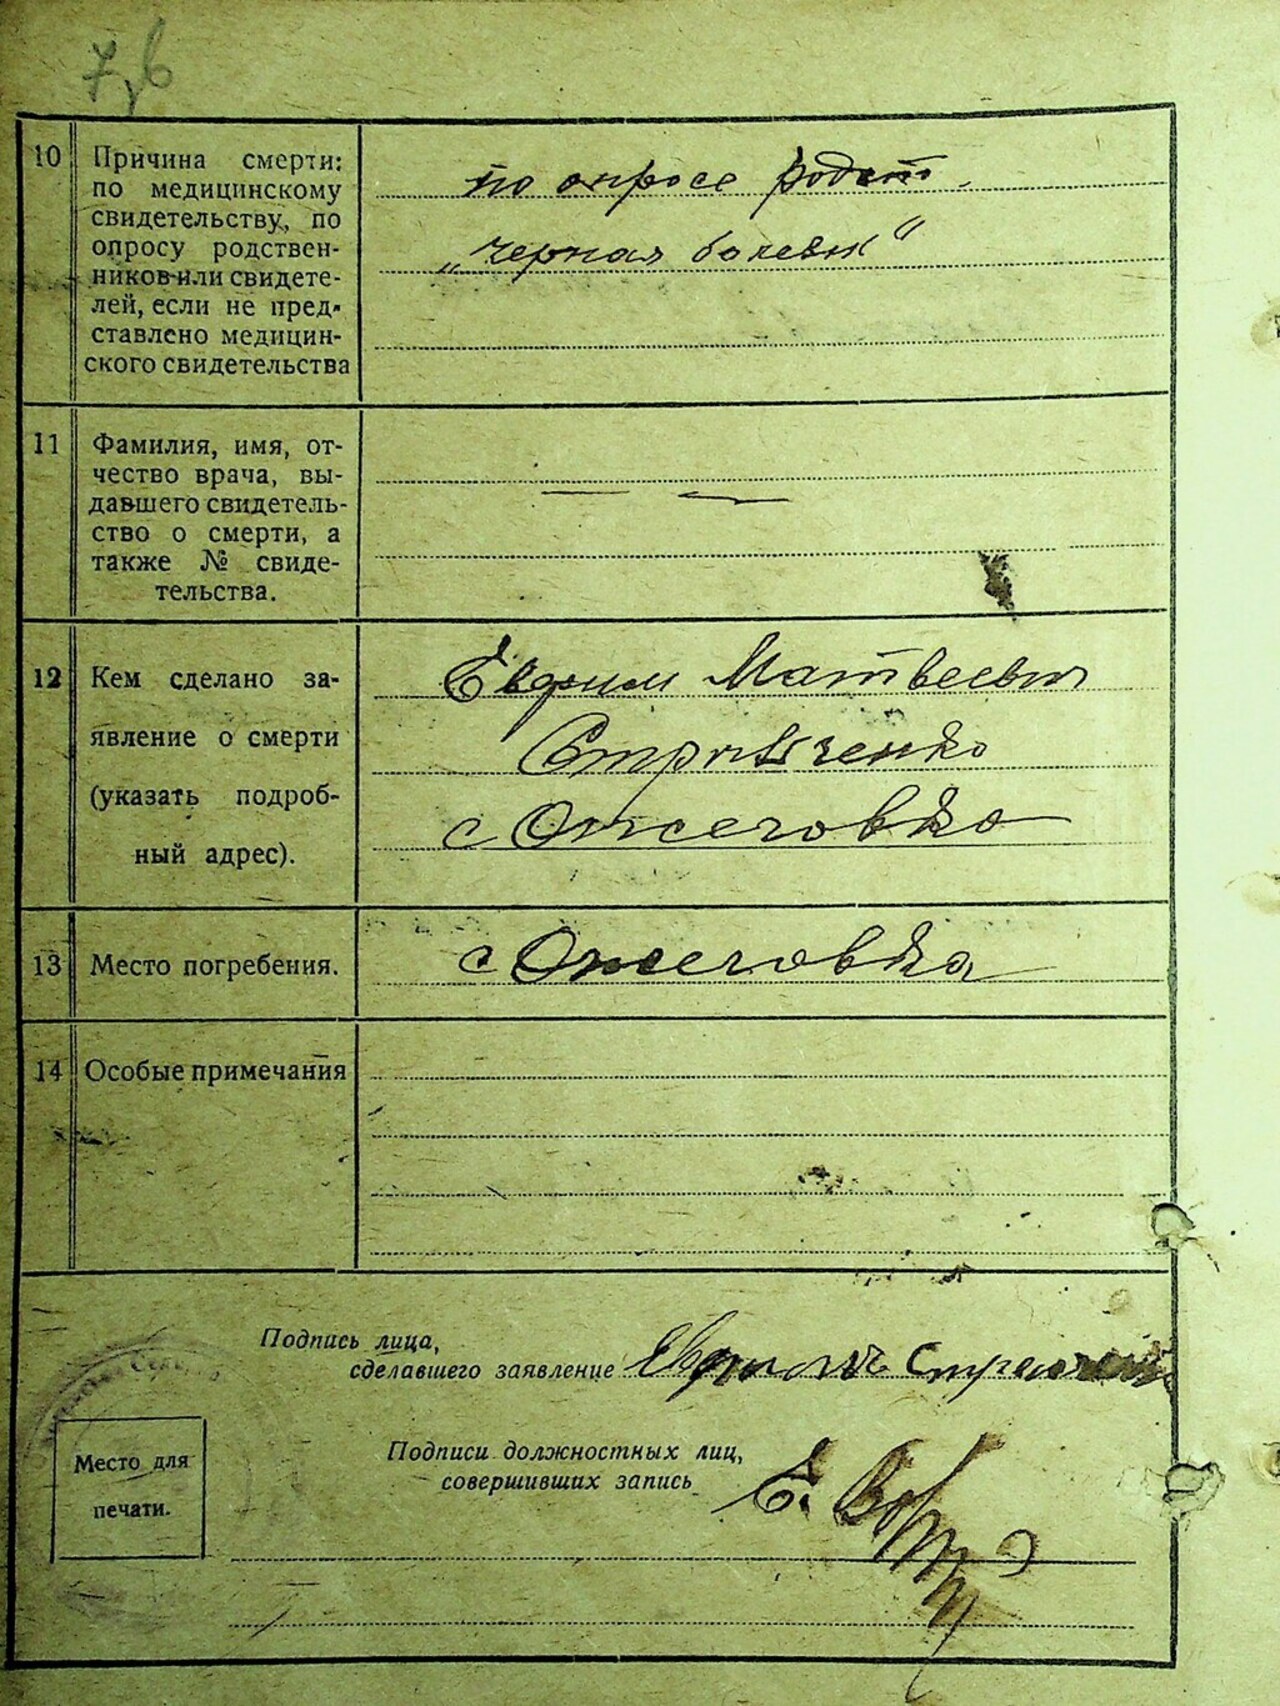 7,6
10 Причина смерти:
по медицинскому
свидетельству, по
опросу родствен-
ников или свидете-
лей, если не пред-
ставлено медицин-
ского свидетельства
по опросе родст.
„черная болезн"
11 Фамилия, имя, от-
чество врача, вы-
давшего свидетель-
ство о смерти, а
также № свиде-
тельства.
— —
12 Кем сделано за-
явление о смерти
(указать подроб-
ный адрес).
Евфим Матвеевич
с Ожеговка
13 Место погребения.
с Ожеговка
14 Особые примечания
Подпись лица,
сделавшего заявление
Подписи должностных лиц,
совершивших запись
Е.
Место для
печати.